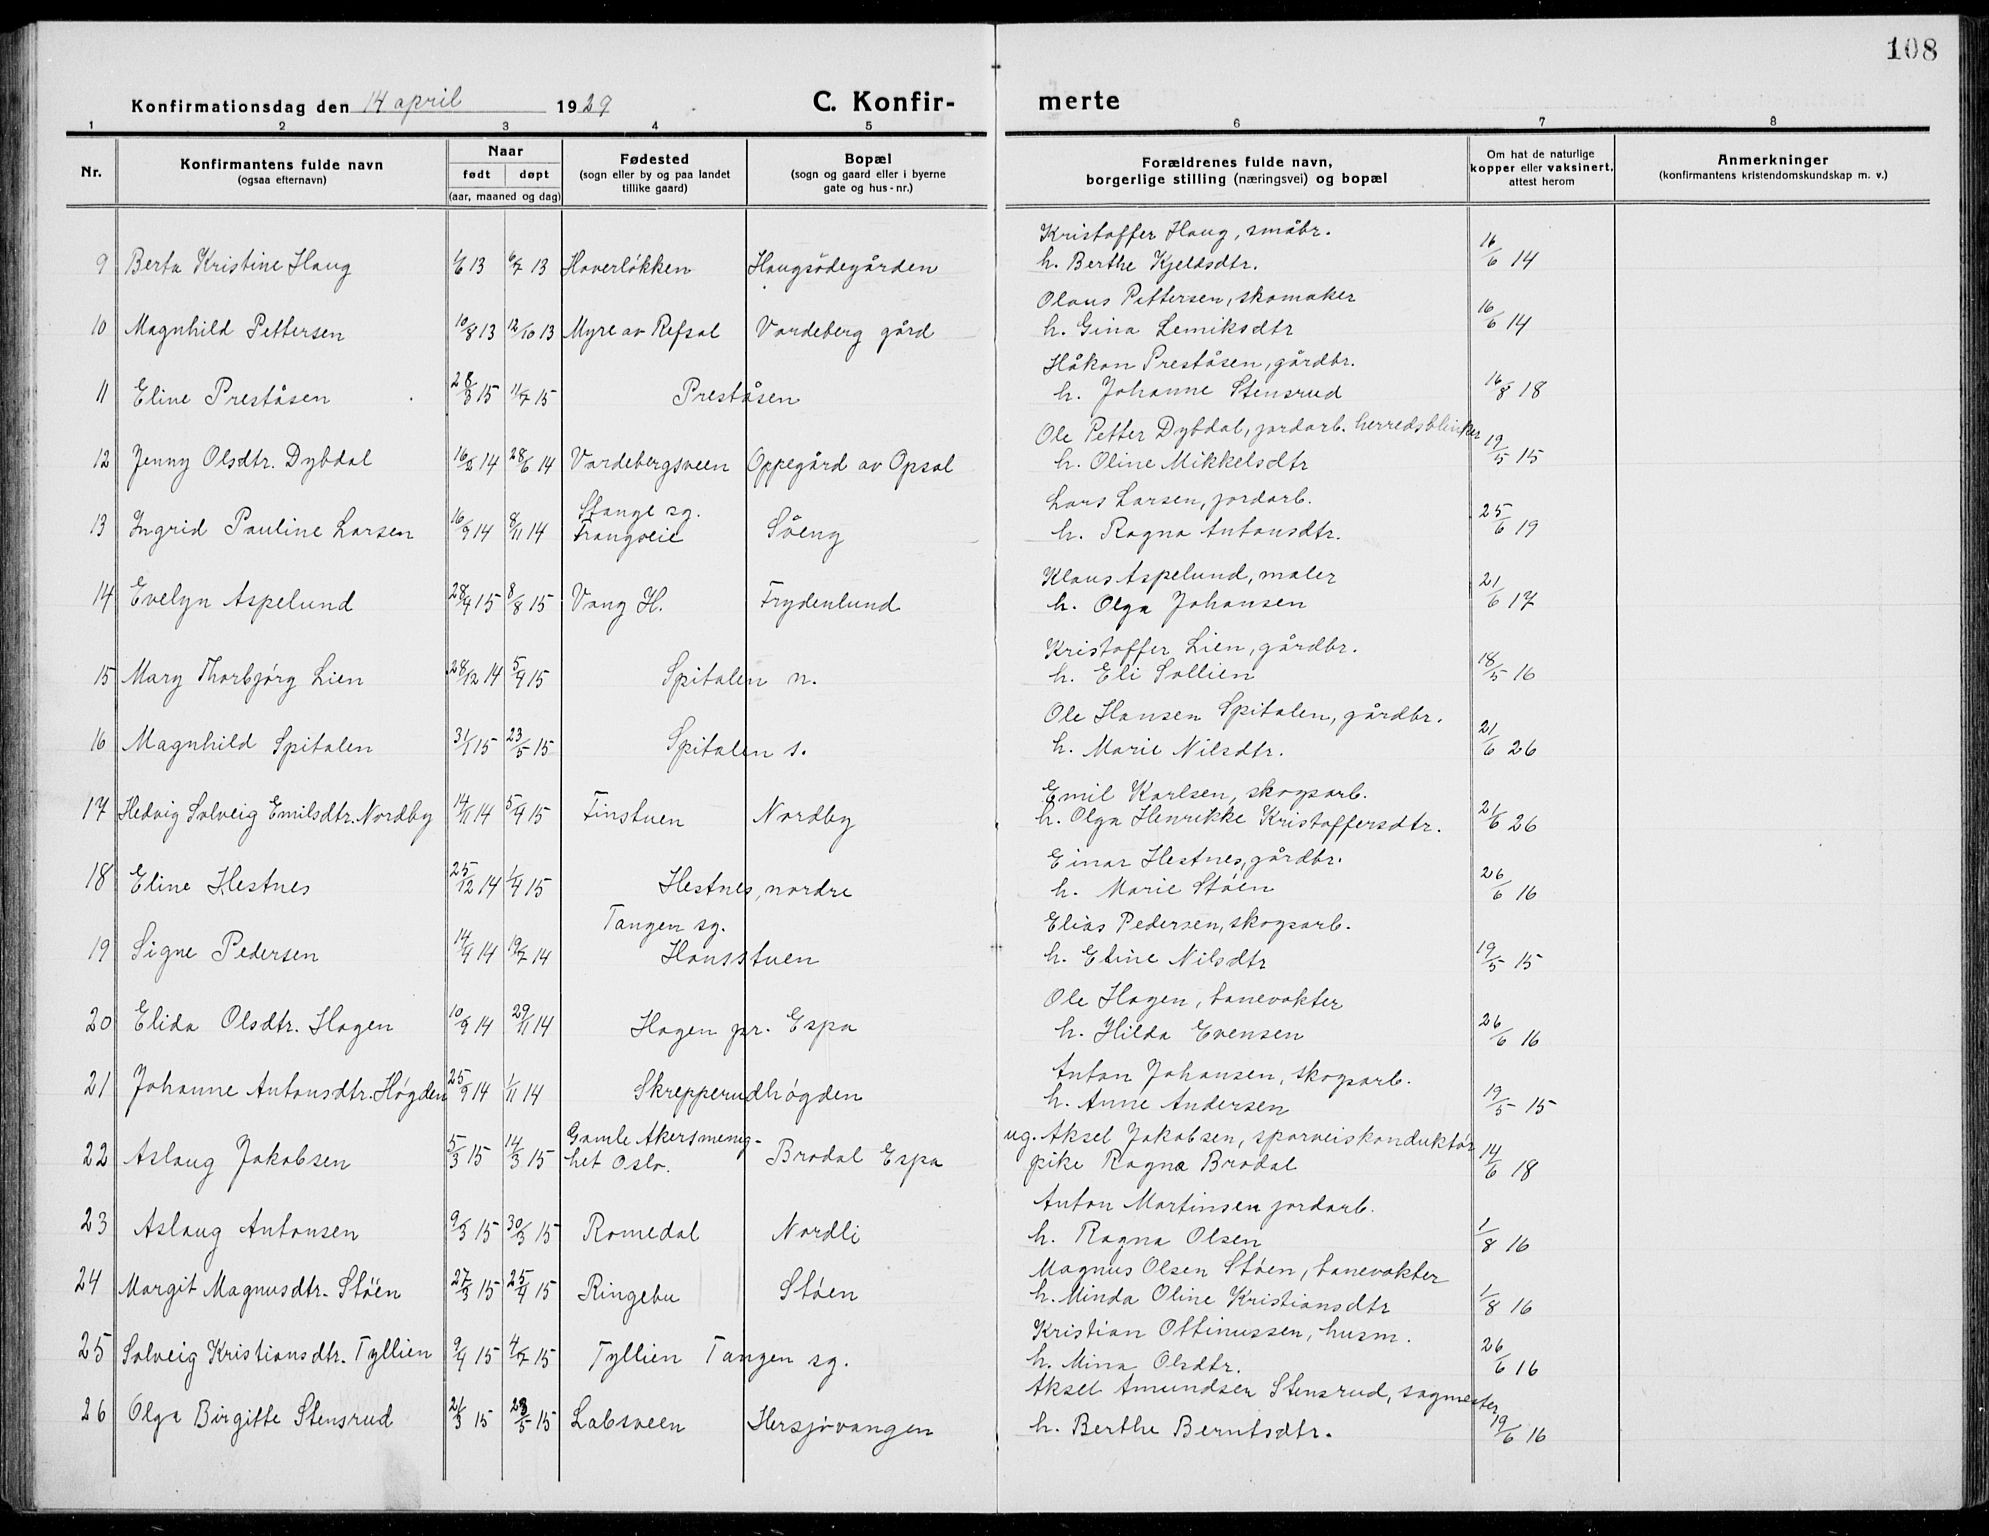 108
Konfirmationsdag den 14 april 1929 C. Konfir- merte
1 2 3 4 5 6 7 8
Nr. Konfirmantens fulde navn (ogsaa efternavn) Naar født døpt (aar, maaned og dag) Fødested (sogn eller by og paa landet tillike gaard) Bopæl (sogn og gaard eller i byerne gate og hus-nr.) Forældrenes fulde navn, borgerlige stilling (næringsvei) og bopæl Om hat de naturlige kopper eller vaksinert, attest herom Anmerkninger (konfirmantens kristendomskundskap m. v.)
Kristoffer Haug, småbr.
9 Berta Kristine Haug 1/6 13 6/7 13 Haverløkken Haugsødegården h. Berthe Kjeldsdtr. 16/6 14
Olaus Pettersen, skomaker
10 Magnhild Pettersen 10/8 13 12/10 13 Myre av Refsal Vardeberg gård h. Gina Lemiksdtr 16/6 14
Håkon Preståsen, gårdbr.
11 Eline Preståsen 28/3 15 11/7 15 Preståsen h. Johanne Stensrud 16/8 18
Ole Petter Dybdal, jordarb. herredsblinker
12 Jenny Olsdtr. Dybdal 14 28/6 14 Vardebergsveen Oppegård av Opsal h. Oline Mikkelsdtr 19/5 15
Stange sg. Lars Larsen, jordarb.
13 Ingrid Pauline Larsen 16/9 14 8/11 14 Trangveie Søeng h. Ragna Antonsdtr. 25/6 19
Klaus Aspelund, maler
14 Evelyn Aspelund 28/4 15 8/8 15 Vang H. Frydenlund h. Olga Johansen 21/6 17
Kristoffer Lien, gårdbr.
15 Mary Thorbjørg Lien 28/12 14 5/4 15 Spitalen n. h. Eli Sollien 18/5 16
Ole Hansen Spitalen, gårdbr.
16 Magnhild Spitalen 31/1 15 23/5 15 Spitalen s. h. Marie Nilsdtr. 21/6 26
Emil Karlsen, skogsarb.
17 Hedvig Solveig Emilsdtr. Nordby 14/11 14 5/4 15 Finstuen Nordby h. Olga Henrikke Kristoffersdtr. 21/6 26
Einar Hestnes, gårdbr.
18 Eline Hestnes 25/12 14 1/4 15 Hestnes, nordre h. Marie Støen 26/6 16
Tangen sg. Elias Pedersen, skogsarb.
19 Signe Pedersen 14/4 14 19/7 14 Hansstuen h. Eline Nilsdtr 19/5 15
Ole Hagen, banevokter
20 Elida Olsdtr. Hagen 10/9 14 29/11 14 Hagen pr. Espa h. Hilda Evensen 26/6 16
Anton Johansen, skogsarb.
21 Johanne Antonsdtr. Høgden 25/9 14 1/11 14 Skrepperudhøgden h. Anne Andersen 19/5 15
Gamle Akersmenig- ug. Aksel Jakobsen, sporveiskonduktør
22 Aslaug Jakobsen 5/3 15 14/3 15 het Oslo. Brodal Espa pike Ragna Brodal 14/6 18
Anton Martinsen jordarb.
23 Aslaug Antonsen 9/3 15 30/5 15 Romedal Nordli h. Ragna Olsen 1/8 16
Magnus Olsen Støen, banevokter
24 Margit Magnusdtr. Støen 27/3 15 25/4 15 Ringebu Støen h. Minda Oline Kristiansdtr 1/8 16
Kristian Ottinussen, husm.
25 Solveig Kristiansdtr. Tyllien 9/4 15 4/7 15 Tyllien Tangen sg. h. Mina Olsdtr. 26/6 16
Aksel Amundsen Stensrud, sagmester
26 Olga Birgitte Stensrud 21/3 15 23/5 15 Labsveen Hersjøvangen h. Berthe Berntsdtr. 19/6 16